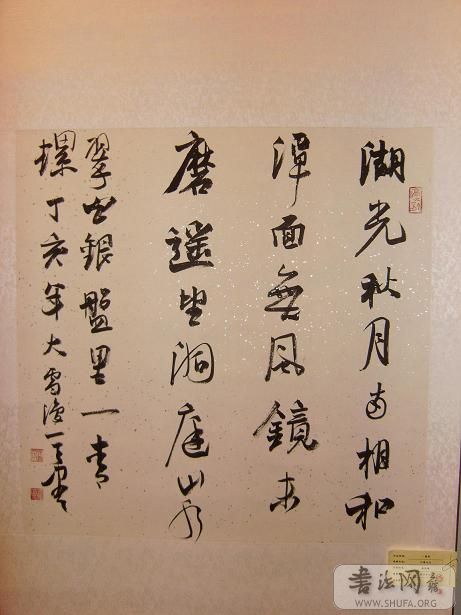 湖光秋月两相和
潭面無風鏡未
磨遥望洞庭山水
翠白銀盤里一青
螺丁亥年大雪後一
書法网
WWW.SHUFA.ORG